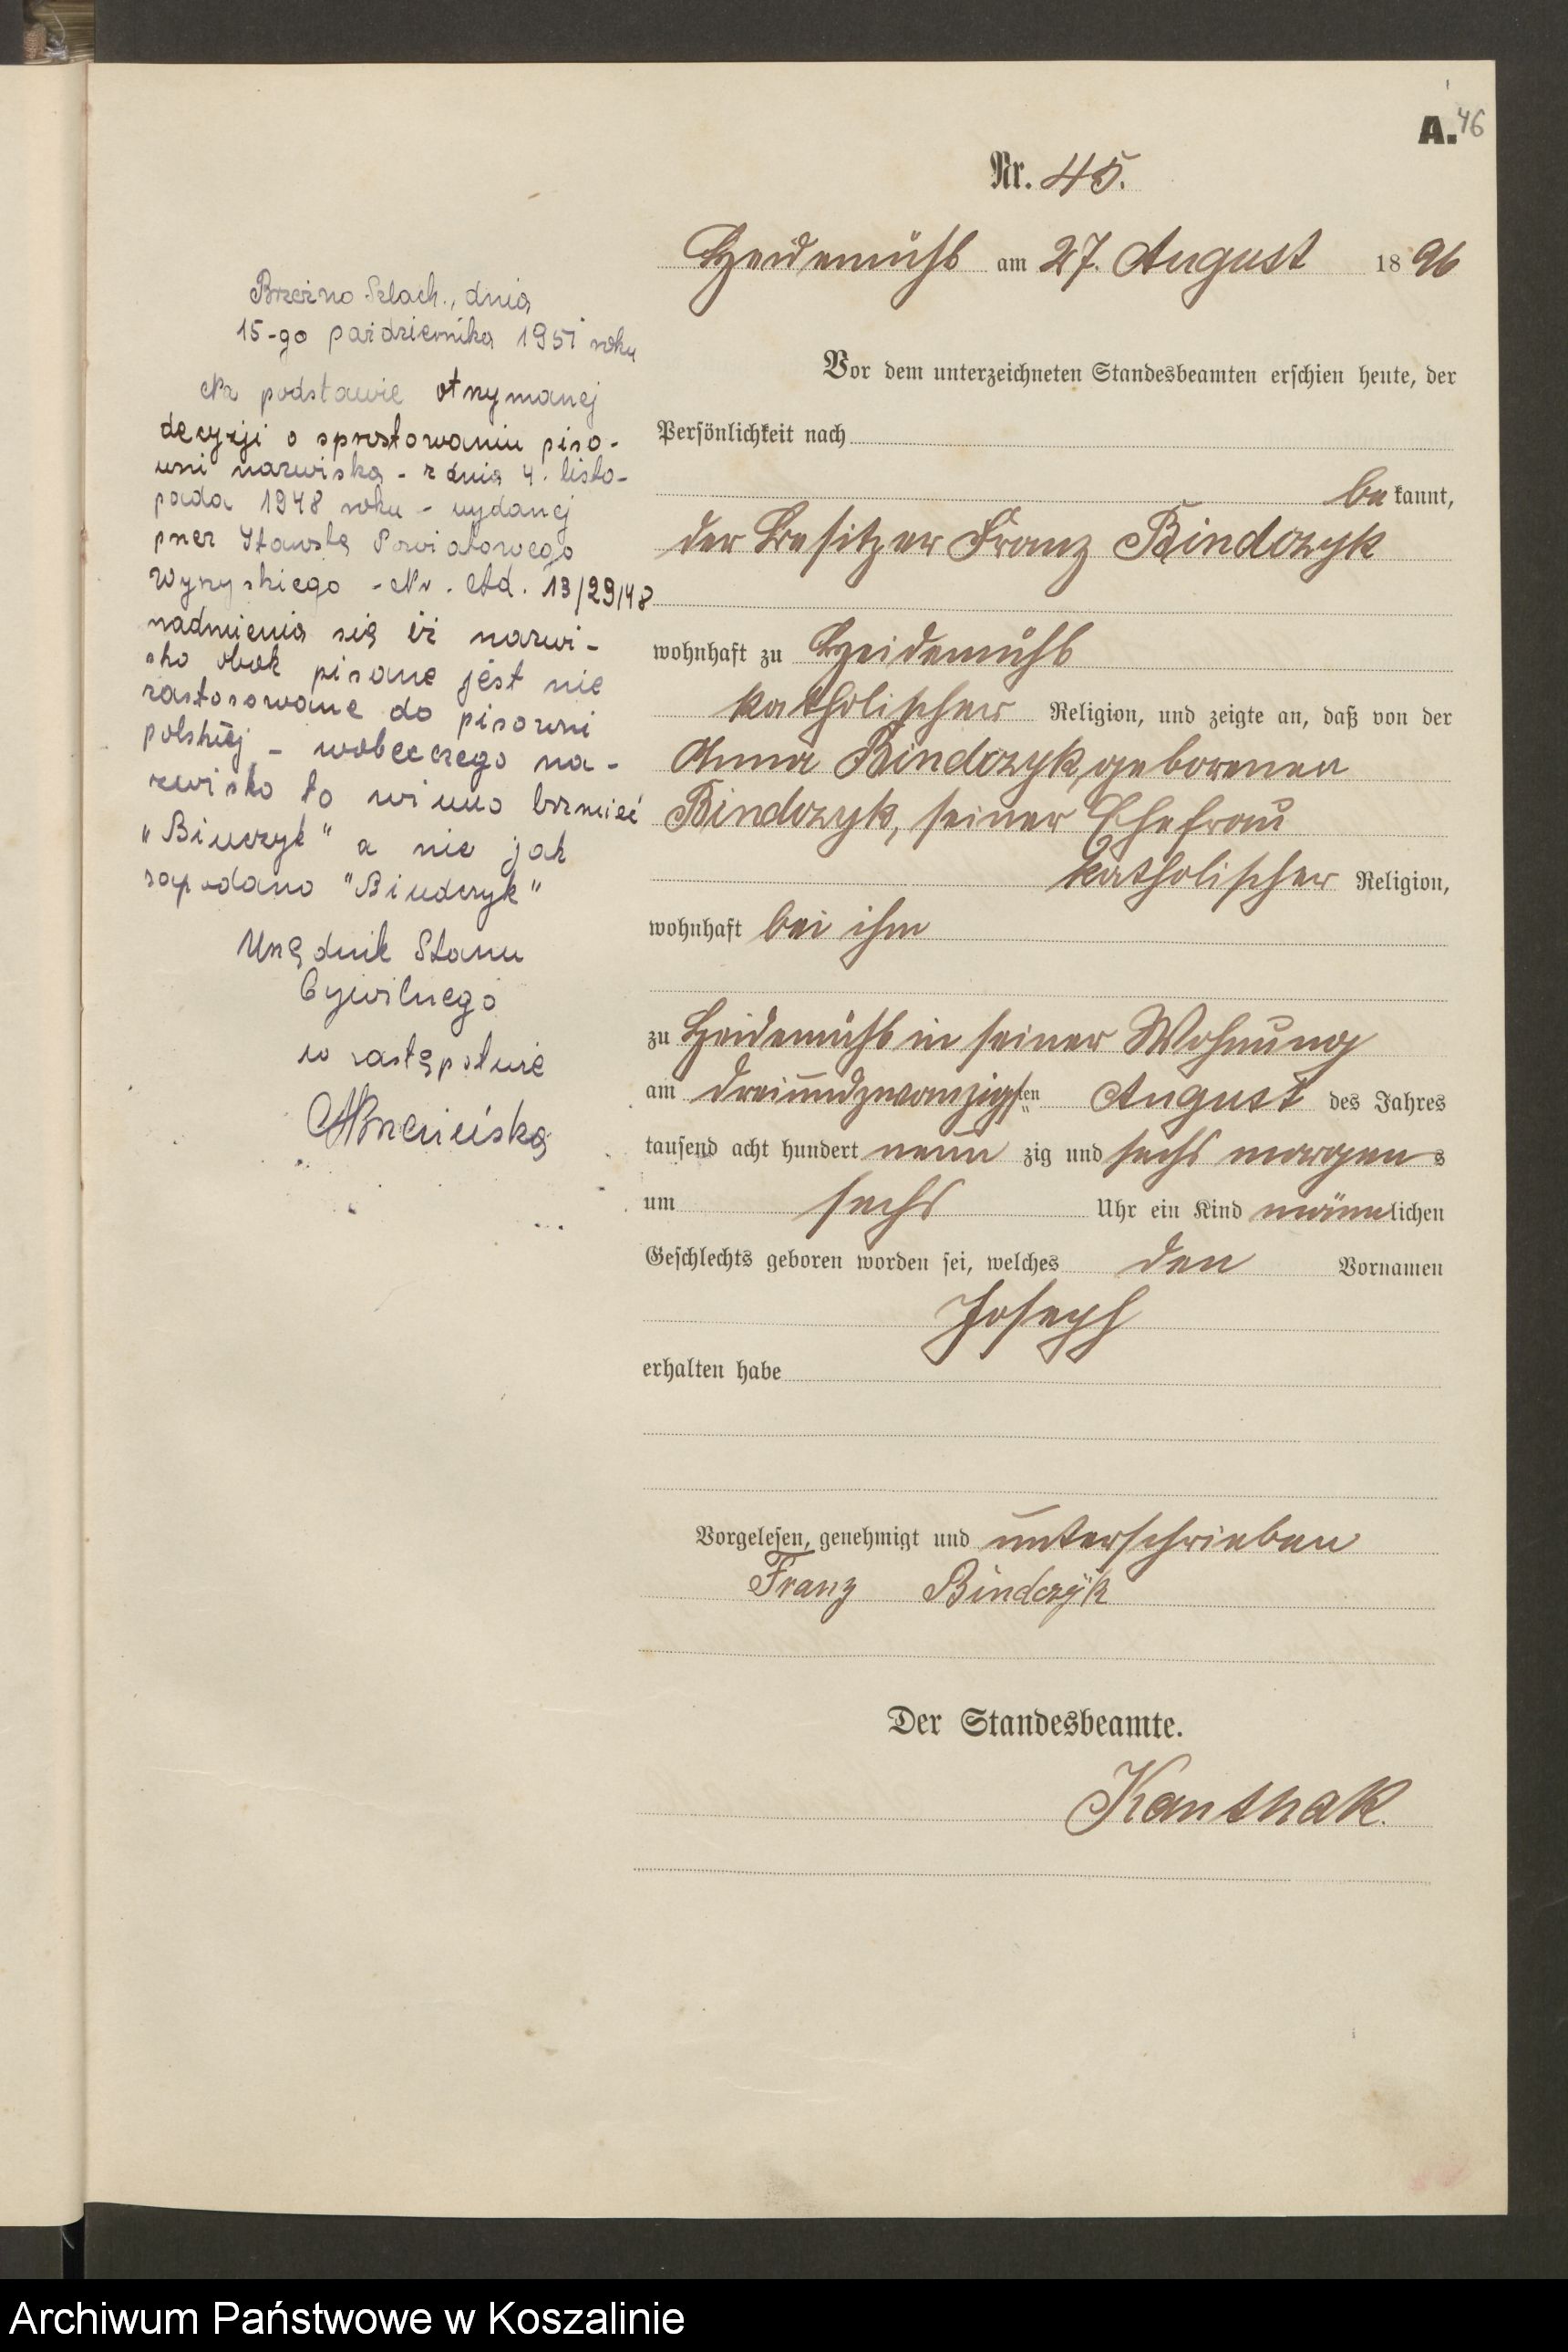 A. 46
Nr. 45.
Heidemühl am 27. August 1896
Vor dem unterzeichneten Standesbeamten erschien heute, der
Persönlichkeit nach
be kannt,
der Besitzer Franz Bindczyk
wohnhaft zu Heidemühl
katholischer Religion, und zeigte an, daß von der
Anna Bindczyk, geborenen
Bindczyk, seiner Ehefrau
katholischer Religion,
wohnhaft bei ihm
zu Heidemühl in seiner Wohnung
am dreiundzwanzigsten August des Jahres
tausend acht hundert neun zig und sechs morgens
um sechs Uhr ein Kind männlichen
Geschlechts geboren worden sei, welches den Vornamen
Joseph
erhalten habe
Vorgelesen, genehmigt und unterschrieben
Franz Bindczÿk
Der Standesbeamte.
Kanthak.
Brzeźno Szlach., dnia
15-go października 1951 roku
Na podstawie otrzymanej
decyzji o sprostowaniu piso-
wni nazwiska - z dnia 4. listo-
pada 1948 roku - wydanej
przez Starostę Powiatowego
Wyrzyskiego - Nr. Ad. 13/29/48
nadmienia się iż nazwi-
sko obok pisane jest nie
zastosowane do pisowni
polskiej - wobec czego na-
zwisko to winno brzmieć
"Binczyk" a nie jak
zapodano "Bindczyk"
Urzędnik Stanu
Cywilnego
w zastępstwie
Archiwum Państwowe w Koszalinie